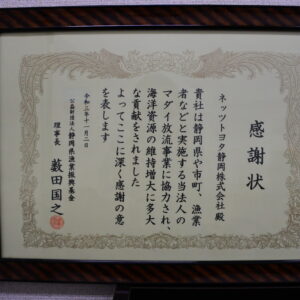 感謝状
ネッツトヨタ静岡株式会社殿
貴社は静岡県や市町、漁業
者などと実施する当法人の
マダイ放流事業に協力され、
海洋資源の維持増大に多大
な貢献をされました
よってここに深く感謝の意
を表します
令和三年十一月二日
公益財団法人静岡県漁業振興基金
理事長 薮田国之